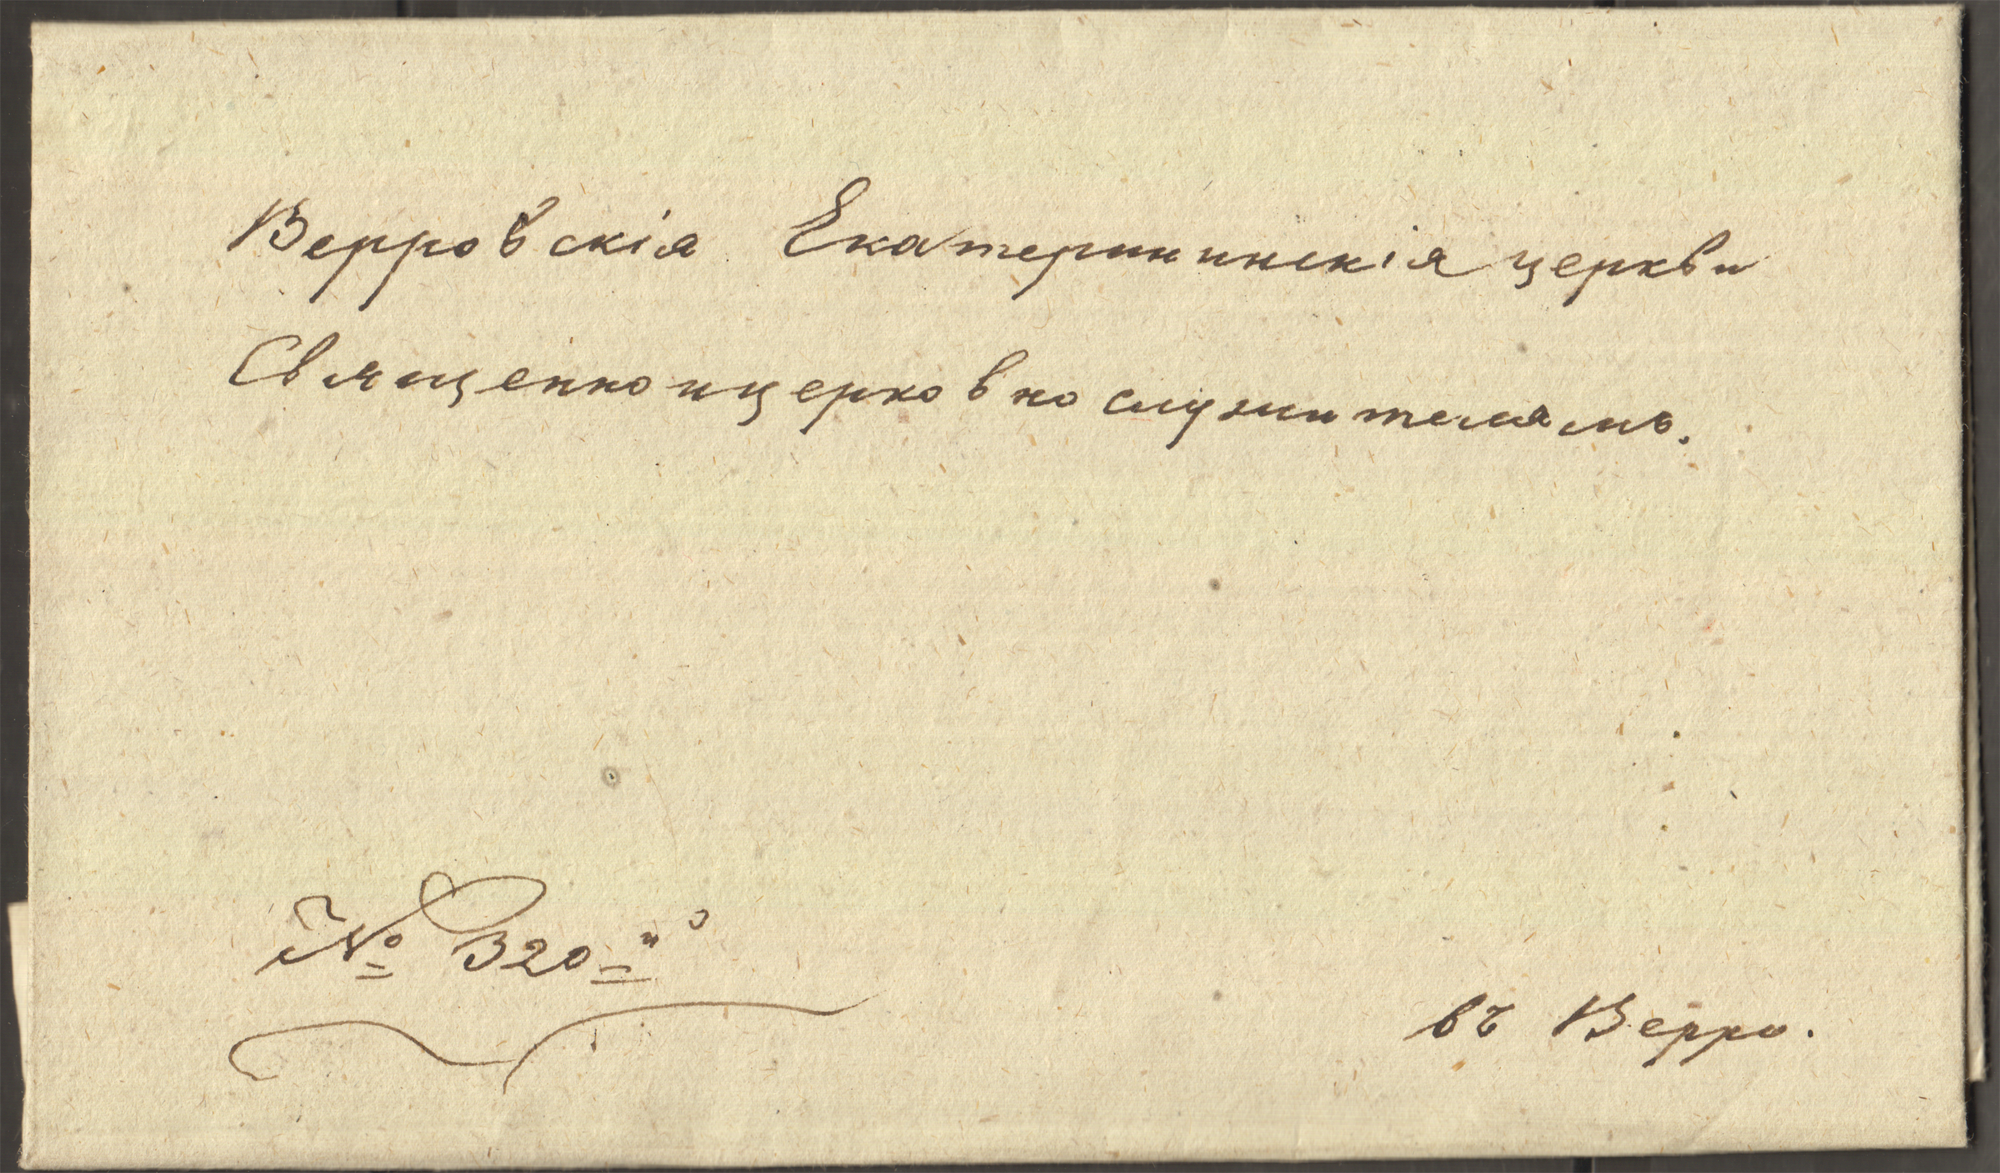 Верровскія Екатерининскія церкви
Священноицерковнослужителямъ.
№ 320
въ Верро.